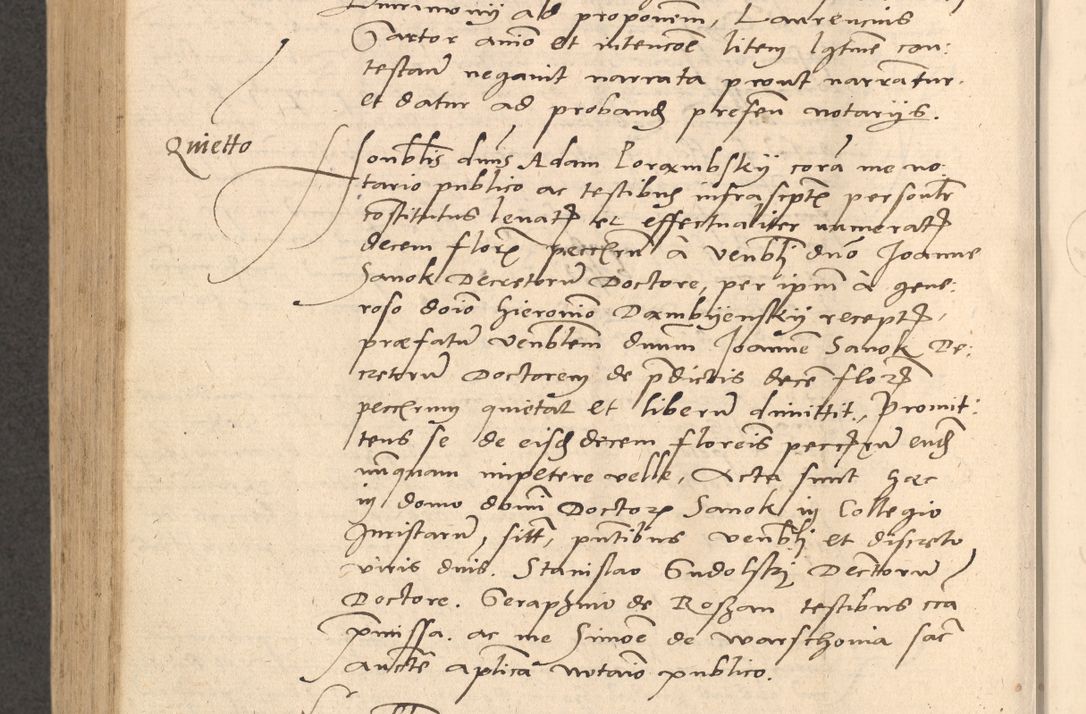 ad proponem, Laurencius
Sartor animo et intencoe litem lgtme con:
testan negavit narrata prout narrantur.
et datur ad proband presen notarijs.
Quietto
Honblis dnus Adam Porambskij cora me no:
tario publico ac testibus infrascptis personlr
constitutus levatis et effectualiter numeratis
decem floren peccrum à venbli dno Joanne
Sanok Decretorum Doctore, per ipm à gene:
roso doio Hieronimo Dambijenskij receptis,
præfatum venblem dnum Joannem Sanok De:
cretorum Doctorem de pdictis decem floren
peccrum quietat et liberum dimittit, Promit:
tens se de eisd decem florenis peccrum eund
nunquam impetere velle, Acta sunt hæc
in domo domini Doctoris Sanok in Collegio
Juristarum, sitt, pntibus venbli et discreto
viris dnis. Stanislao Gudolski Dectorum
Doctore. Seraphino de Rosan testibus cca
pmissa. ac me Simoe de Warschovia sac
aucte aplica notaio publico.